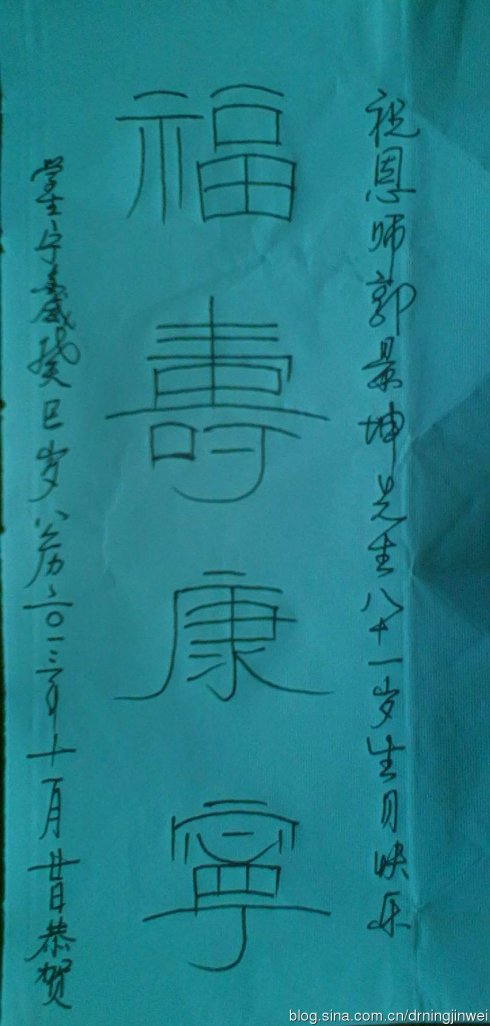 祝恩师郭景坤先生八十一岁生日快乐
福壽康寧
学生宁癸巳岁公历二〇一三年十一月廿日恭贺
blog.sina.com.cn/drningjinwei